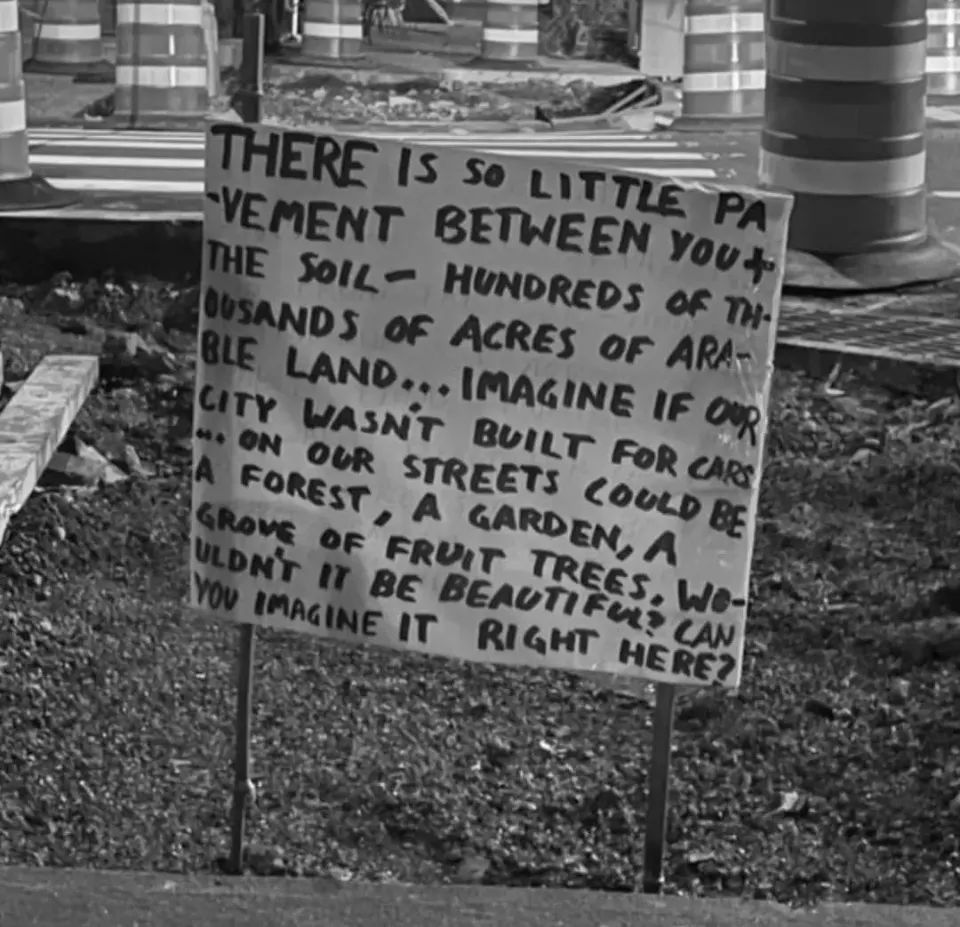 THERE IS SO LITTLE PA
-VEMENT BETWEEN YOU +
THE SOIL - HUNDREDS OF TH-
OUSANDS OF ACRES OF ARA-
BLE LAND... IMAGINE IF OUR
CITY WASN'T BUILT FOR CARS
... ON OUR STREETS COULD BE
A FOREST, A GARDEN, A
GROVE OF FRUIT TREES. WO-
ULDN'T IT BE BEAUTIFUL? CAN
YOU IMAGINE IT RIGHT HERE?